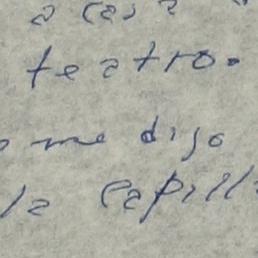 a casa
teatro.
me dijo
la capill